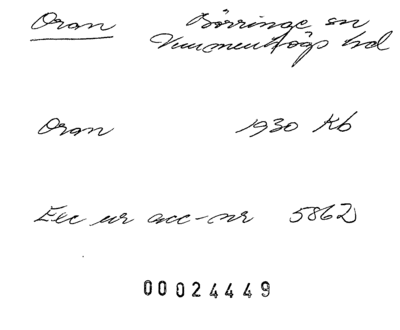 Oran Börringe sn
Vemmenhögs hd
Oran 1930 Kb
Exc ur acc-nr 5862
00024449